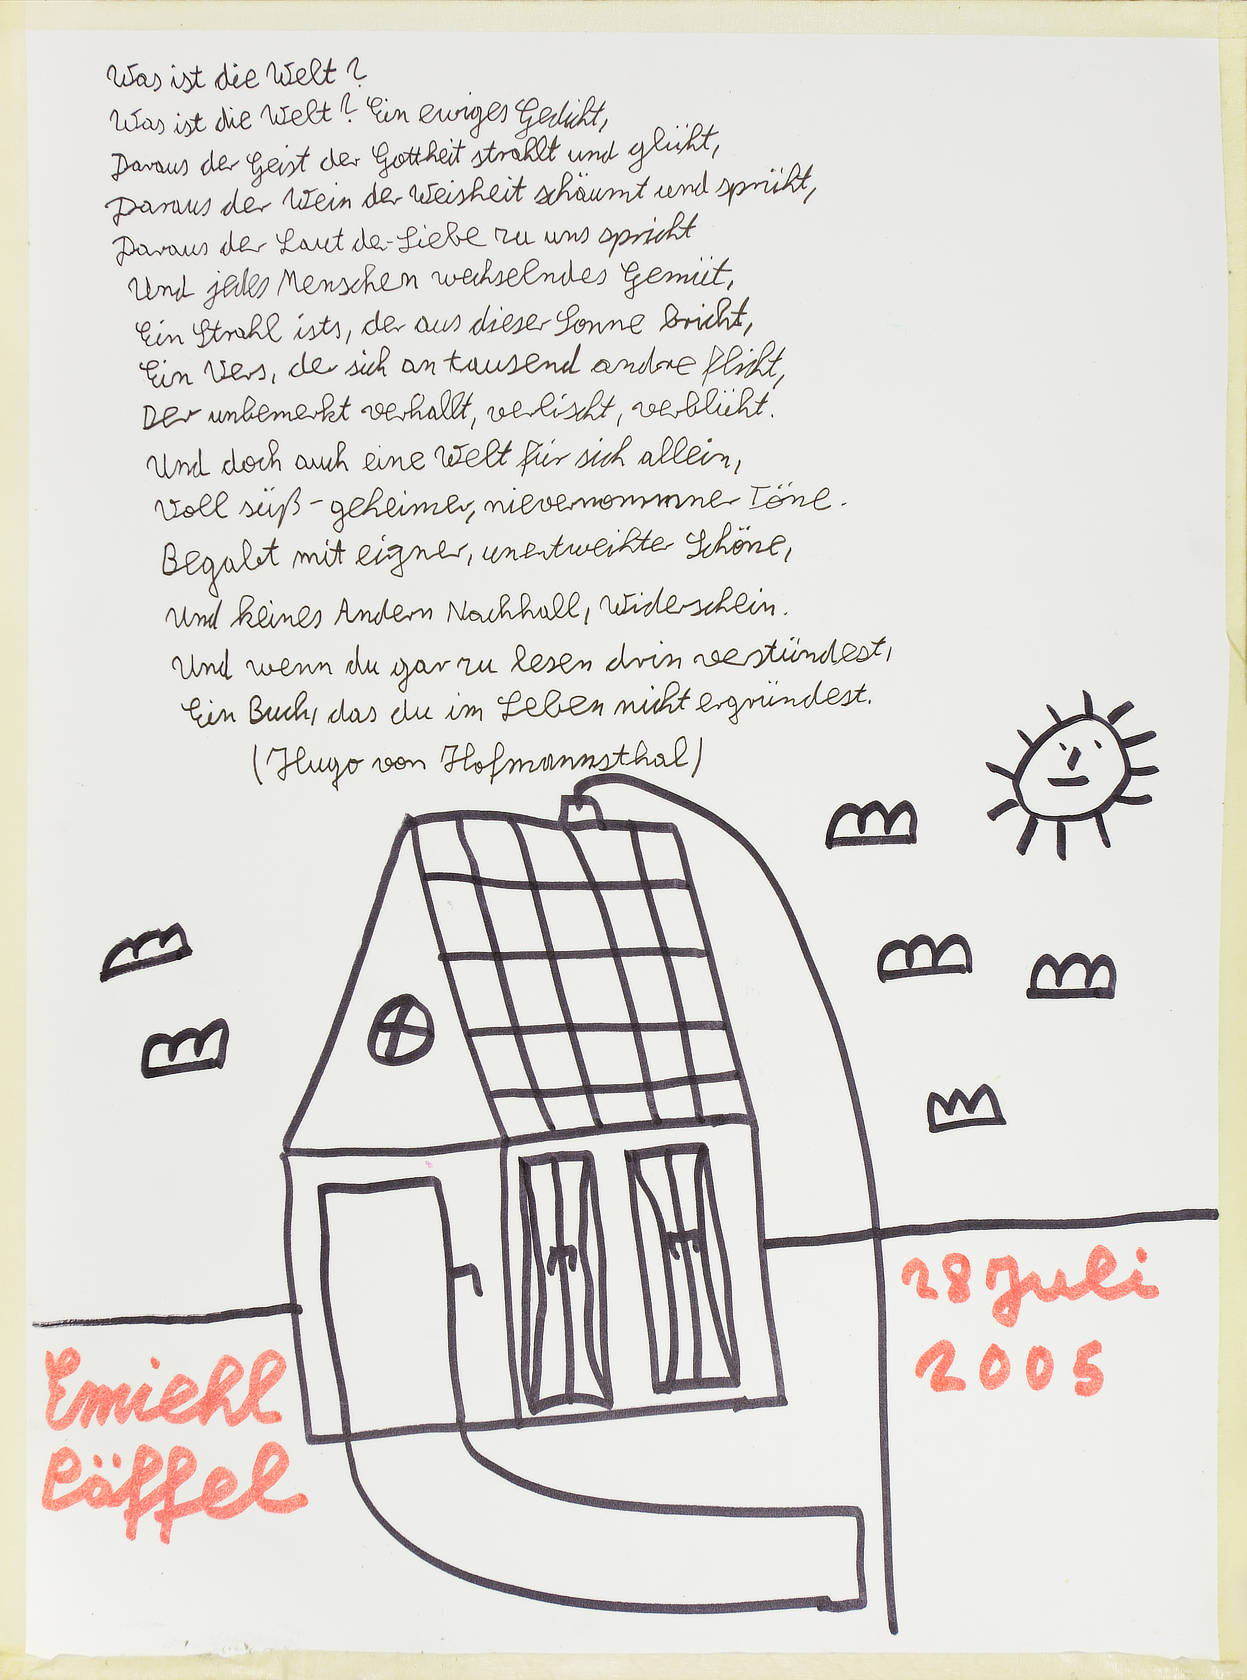 Was ist die Welt?
Was ist die Welt? Ein ewiges Gedicht,
Daraus der Geist der Gottheit strahlt und glüht,
Daraus der Wein der Weisheit schäumt und sprüht,
Daraus der Laut der Liebe zu uns spricht
Und jedes Menschen wechselndes Gemüt,
Ein Strahl ists, der aus dieser Sonne bricht,
Ein Vers, der sich an tausend andre flicht,
Der unbemerkt verhallt, verlischt, verblüht.
Und doch auch eine Welt für sich allein,
Voll süß-geheimer, nievernommner Töne.
Begabt mit eigner, unentweihter Schöne,
Und keines Andern Nachhall, Widerschein.
Und wenn du gar zu lesen drin verstündest,
Ein Buch, das du im Leben nicht ergründest.
(Hugo von Hofmannsthal)
28 Juli
2005
Emiehl
Cäffel